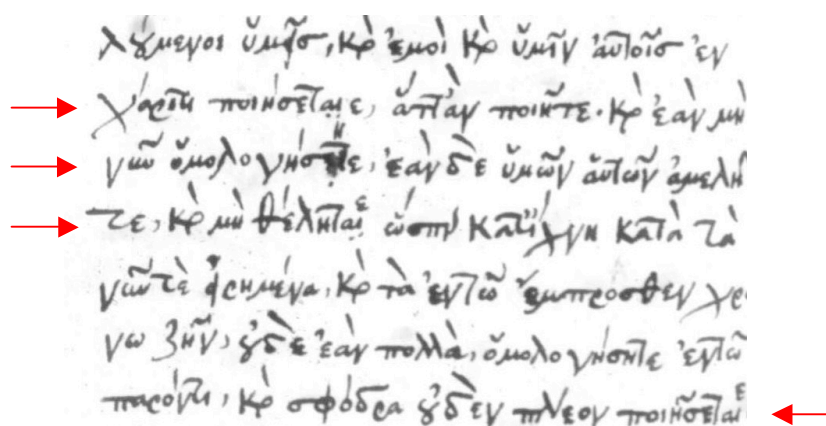 λούμενοι ὑμεῖς, καὶ ἐμοὶ καὶ ὑμῖν αὐτοῖς ἐν
χάριτι ποιήσεται ε, ἅττ' ἂν ποιῆτε. καὶ ἐὰν μὴ
νῦν ὁμολογήσητε, ἐὰν δὲ ὑμῶν αὐτῶν ἀμελῆ
τε, καὶ μὴ θέληται ε ὥσπερ κατ' ἴχνη κατὰ τὰ
νῦν τὲ εἰρημένα, καὶ τὰ ἐν τῶ ἔμπροσθεν χρό
νω ζῆν, οὐδὲ ἐὰν πολλὰ, ὁμολογήσητε ἐν τῶ
παρόντι, καὶ σφόδρα οὐδὲν πλέον ποιήσεται ε